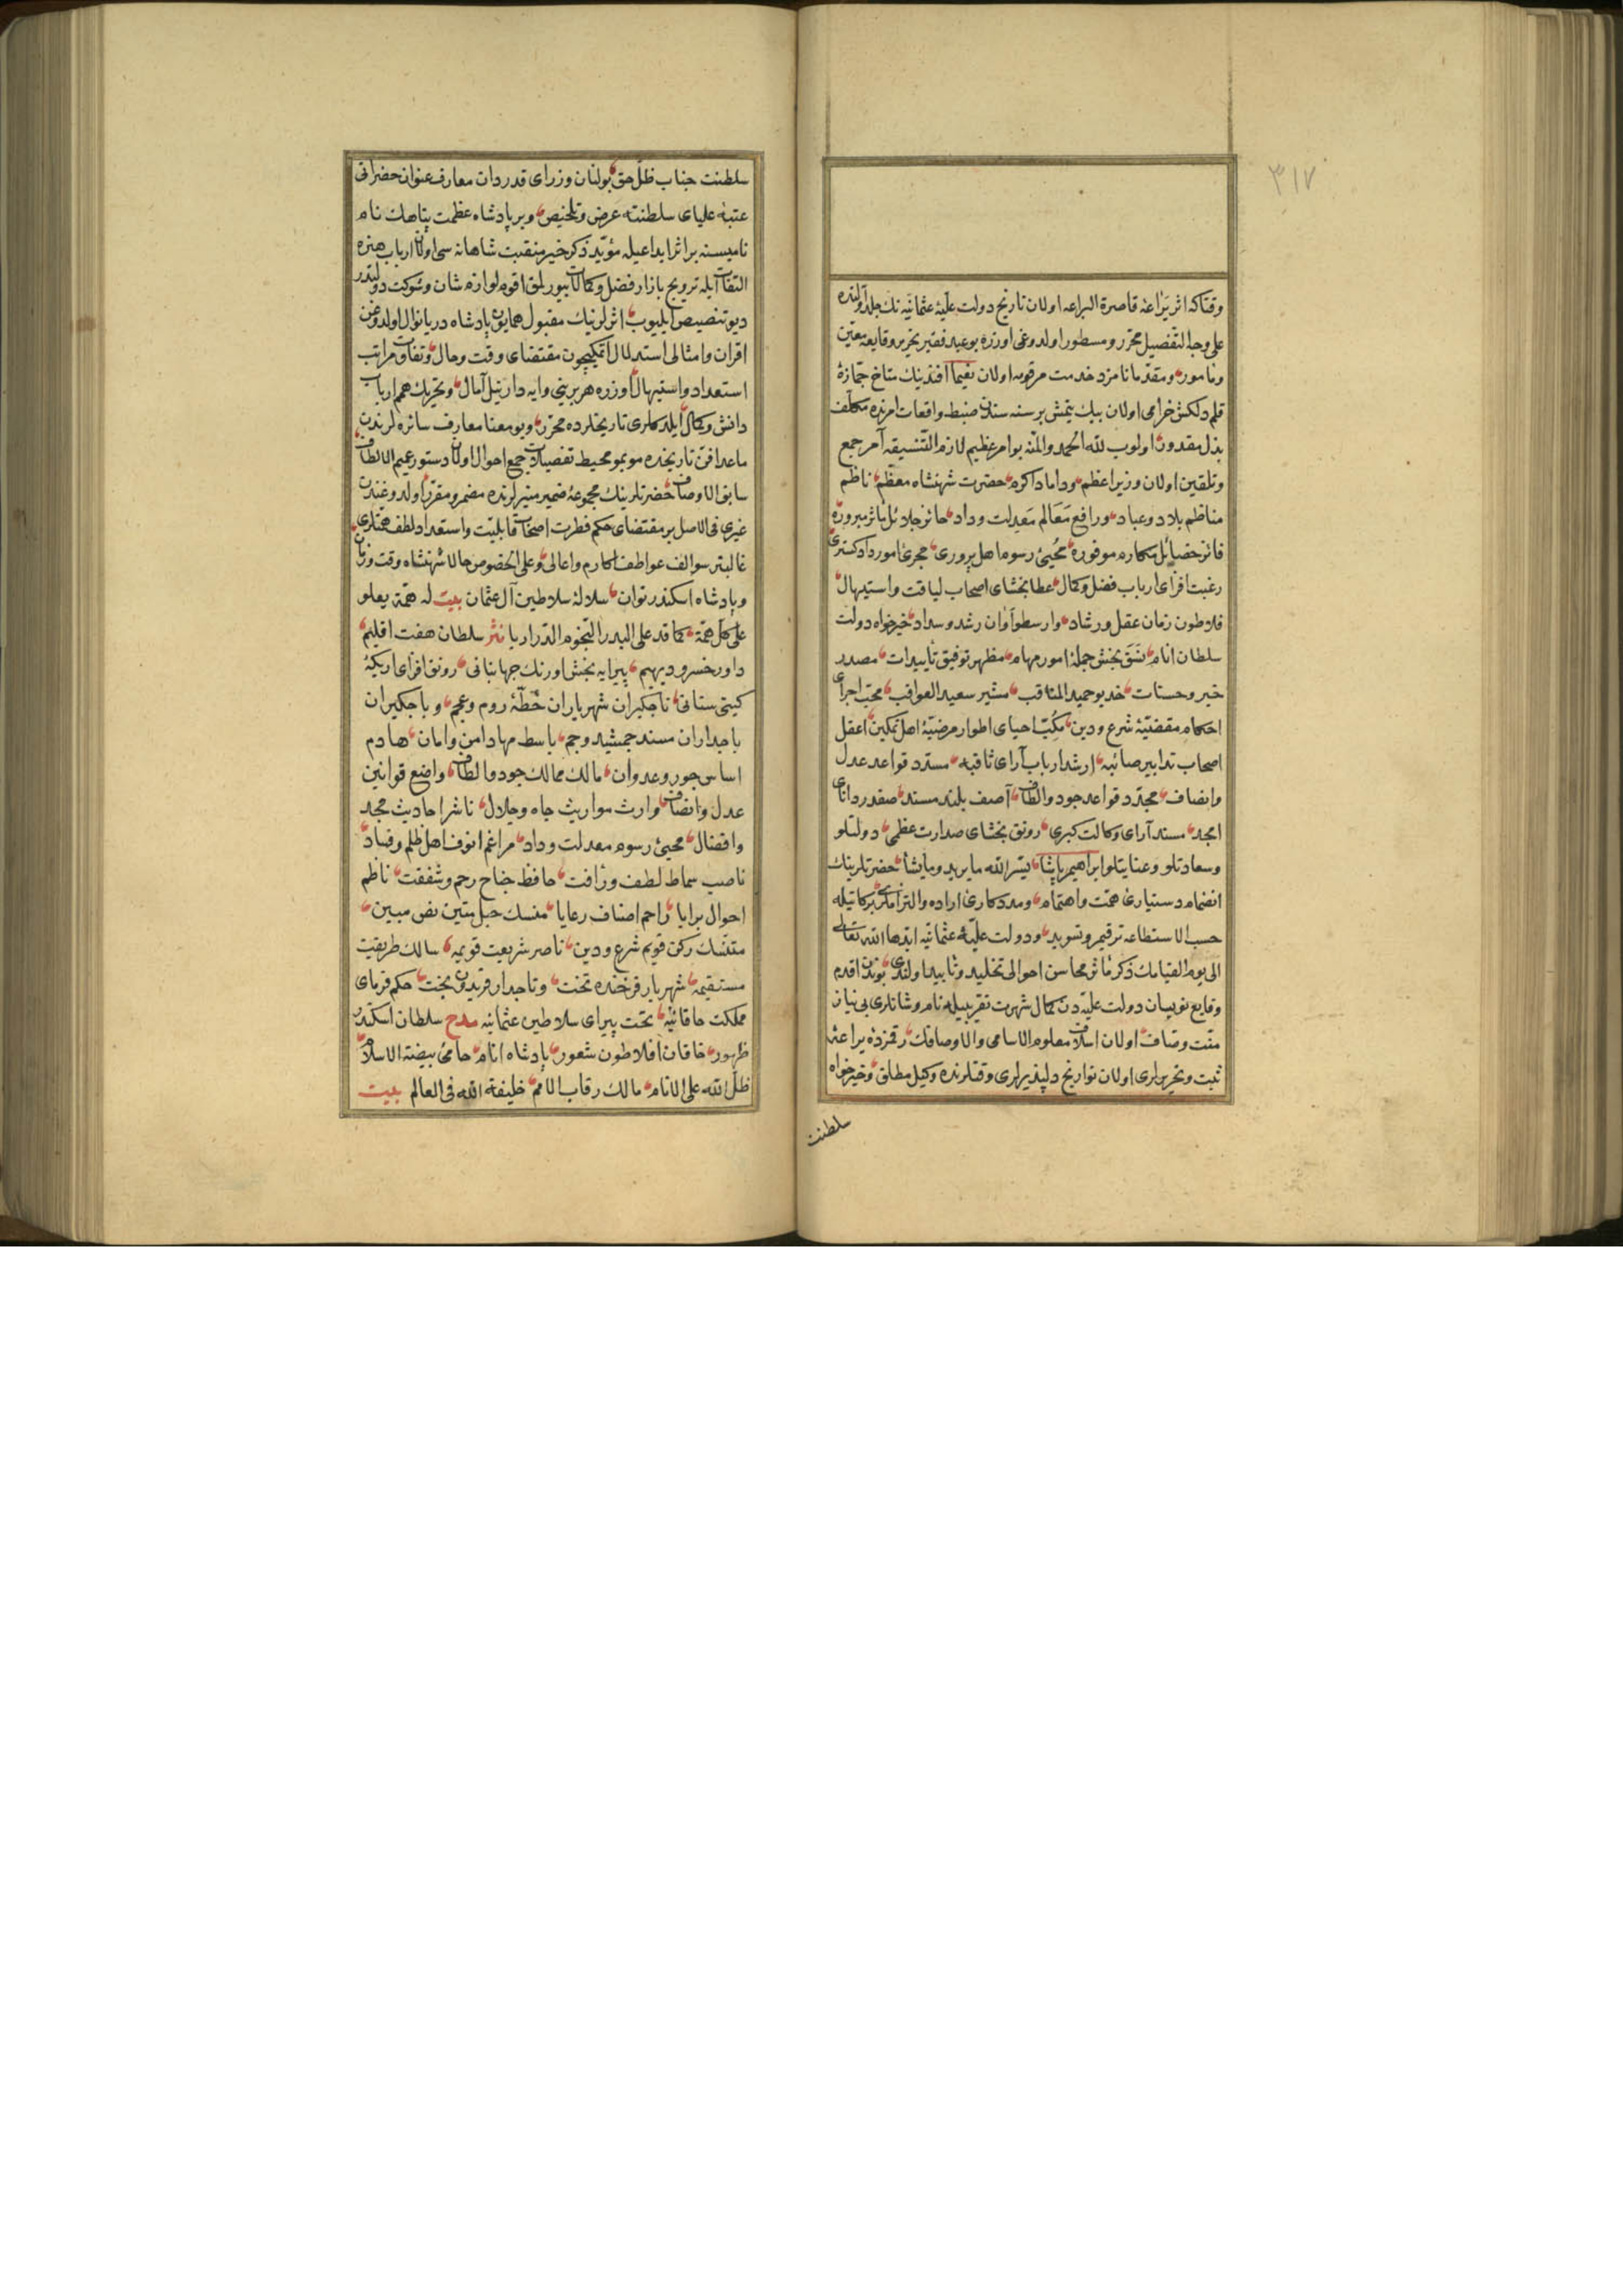 ٣١٧
وقتاكه اثر يراعۀ قاصرة البراعه اولان تاريخ دولت عليۀ عثمانيه نك جلد اولنده
على وجه التفصيل محرر ومسطور اولدوغى اوزره بو عبد فقير تحرير وقايعه معين
ومأمور و مقدما نامزد خدمت مرقومه اولان نعيما افندينك متاخ جمازۀ
قلم دلكش خرامى اولان بيك يتمش بر سنه سندن ضبط واقعات امرنده مكلف
بذل مقدور اولوب لله الحمد والمنه بو امر عظيم لازم التنسيقه آمر جمع
وتلقين اولان وزير اعظم وداماد اكرم حضرت شهنشاه معظم ناظم
مناظم بلاد وعباد ورافع معالم معدلت وداد حائز جلائل مآثر مبروره
فائز خصائل مكارم موفوره محيى رسوم اهل پرورى مجرئ امور دادكسترى
رغبت افزاى ارباب فضل وكمال عطا بخشاى اصحاب لياقت واستيهال
فلاطون زمان عقل ورشاد وارسطو اوان رشد وسداد خيرخواه دولت
سلطان انام نسق بخش جملۀ امور مهام مظهر توفيق تأييدات مصدر
خير وحسنات خديو حميد المناقب مشير سعيد العواقب محب اجراى
احكام مقضيۀ شرع ودين مكب احياى اطوار مرضيۀ اهل تمكين اعقل
اصحاب تدابير صائبه ارشد ارباب آراى ثاقبه مسدد قواعد عدل
وانصاف مجدد قواعد جود والطاف آصف بلند مسند صفدر داناى
امجد مسند آراى وكالت كبرى رونق بخشاى صدارت عظمى دولتلو
وسعادتلو وعنايتلو ابراهيم پاشا يسر الله ما يريد وما يشأ حضرتلرينك
انضمام دستيارئ همت واهتمام ومددكارئ اراده والتزاملرى بركاتيله
حسب الاستطاعه ترقيم وتسويد ودولت عليۀ عثمانيه ابدها الله تعالى
الى يوم القيامك ذكر مآثر محاسن احوالى تخليد وتأبيد اولندى بوندن اقدم
وقايع نويسان دولت عليه دن كمال شهرت تقريبيله نام وشانلرى بى نياز
منت وصاف اولان اسلاف معلوم الاسامى والاوصافك رقمزدۀ يراعۀ
ثبت وتحريرلرى اولان تواريخ دلپذيرلرى وقتلرنده وكيل مطلق وخيرخواه
سلطنت
سلطنت جناب ظل حق بولنان وزراى قدردان معارف عنوان حضراتى
عتبۀ علياى سلطنته عرض وتلخيص وبر پادشاه عظمت پناهك نام
ناميسنه بر اثر ابداعيله مؤبد ذكر خير منقبت شاهانه سى اولان ارباب هنره
التفات ايله ترويج بازار فضل وكمالات بيورلمق اقوم لوازم شان وشوكت دولتدر
ديو تنصيص ايليوب اثرلرينك مقبول همايون پادشاه دريا نوال اولدوغن
اقران وامثالى استدلال اتمكيچون مقتضاى وقت وحال وتفاوت مراتب
استعداد واستيهال اوزره هر برينى وايه دار نيل آمال وتحريك همم ارباب
دانش وكمال ايلدكلرى تاريخلرده محرر وبو معنا معارف سائره لرندن
ماعدا فن تاريخده موبمو محيط تفصيلات جمع احوال اولان دستور عميم الالطاف
سابق الاوصاف حضرتلرينك مجموعۀ ضمير منيرلرنده مضمر ومقرر اولدوغندن
غيرى فى الاصل بر مقتضاى حكم فطرت اصحاب قابليت واستعداد لطف همتلرى
غالبتر سوالف عواطف اكارم واعالى وعلى الخصوص حالا شهنشاه وقت وزمان
وپادشاه اسكندر توان سلالۀ سلاطين آل عثمان بيت له همة يعلو
على كل همة كما قد على البدر النجوم الدراريا نثر سلطان هفت اقليم
داور خسرو ديهيم پيرايه بخش اورنك جهانبانى رونق افزاى اريكۀ
كيتى ستانى تاجكيران شهرياران خطۀ روم وعجم وباجكيران
باجداران مسند جمشيد وجم باسط مهاد امن وامان هادم
اساس جور وعدوان مالك ممالك جود والطاف واضع قوانين
عدل وانصاف وارث مواريث جاه وجلال ناشر احاديث مجد
وافضال محيئ رسوم معدلت وداد مراغم انوف اهل ظلم وفساد
ناصب سماط لطف ورأفت حافظ جناح رحم وشفقت ناظم
احوال برايا راحم اصناف رعايا متمسك حبل متين نص مبين
متنسك ركن قويم شرع ودين ناصر شريعت قويمه سالك طريقت
مستقيمه شهريار فرخنده تخت وتاجدار فريدون بخت حكم فرماى
مملكت خاقانيه تخت پيراى سلاطين عثمانيه مدح سلطان اسكندر
ظهور خاقان افلاطون شعور پادشاه انام حامئ بيضة الاسلام
ظل الله على الانام مالك رقاب الامم خليفة الله فى العالم بيت